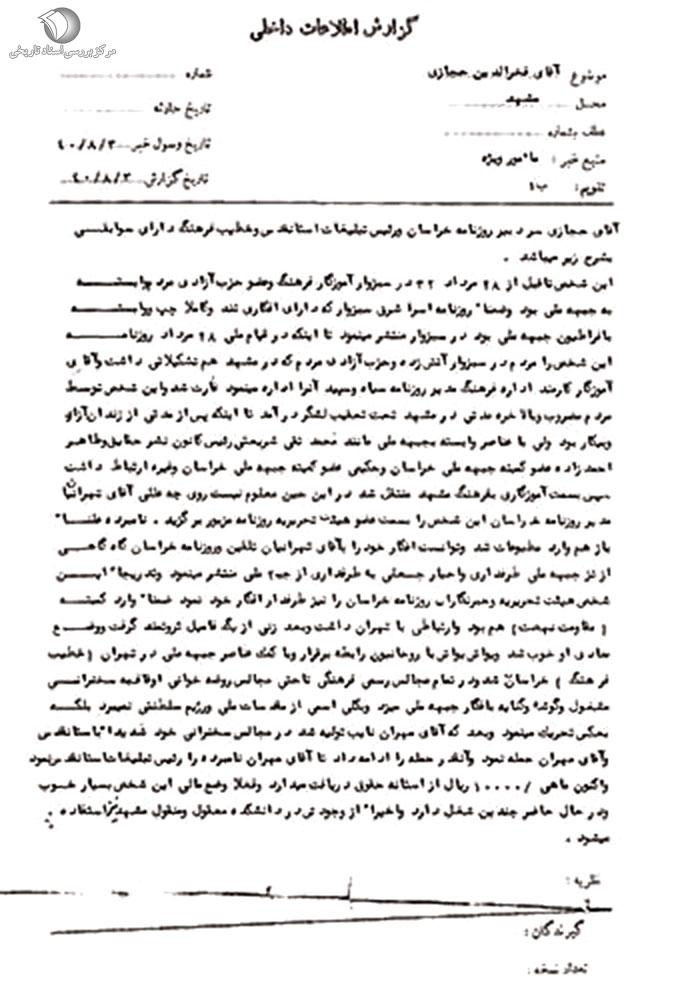 مرکز بررسی اسناد تاریخی
گزارش اطلاعات داخلی
موضوع آقای فخرالدین حجازی
شماره
محل مشهد
تاریخ حادثه
عطف بشماره
تاریخ وصول خبر ۴۰/۸/۳
منبع خبر : مأمور ویژه
تاریخ گزارش ۴۰/۸/۳
تقویم : ب ۱
آقای حجازی سردبیر روزنامه خراسان ورئیس تبلیغات استانقدس وخطیب فرهنگ دارای سوابقی
بشرح زیر میباشد .
این شخص تا قبل از ۲۸ مرداد ۳۲ در سبزوار آموزگار فرهنگ وعضو حزب آزادی مردم وابسته
به جبهه ملی بود وضمنا" روزنامه اسرار شرق سبزوار که دارای افکاری تند وکاملا چپ ووابسته
بافراطیون جبهه ملی بود در سبزوار منتشر مینمود تا اینکه در قیام ملی ۲۸ مرداد روزنامه
این شخص را مردم در سبزوار آتش زده وحزب آزادی مردم که در مشهد هم تشکیلاتی داشت وآقای
آموزگار کارمند اداره فرهنگ مدیر روزنامه سیاه وسپید آنرا اداره مینمود غارت شد واین شخص توسط
مردم مضروب وبالاخره مدتی در مشهد تحت تعقیب لشگر در آمد تا اینکه پس از مدتی از زندان آزاد
وبیکار بود ولی با عناصر وابسته بجبهه ملی مانند محمد تقی شریعتی رئیس کانون نشر حقایق وطاهر
احمدزاده عضو کمیته جبهه ملی خراسان وحکیمی عضو کمیته جبهه ملی خراسان وغیره ارتباط داشت
سپس بسمت آموزگاری بفرهنگ مشهد منتقل شد در این حین معلوم نیست روی چه عللی آقای تهرانیان
مدیر روزنامه خراسان این شخص را بسمت عضو هیئت تحریریه روزنامه مزبور برگزید . نامبرده علنا"
باز هم وارد مطبوعات شد وتوانست افکار خود را بآقای تهرانیان تلقین وروزنامه خراسان گاه گاهی
از نز جبهه ملی طرفداری واخبار جعلی به طرفداری از جبهه ملی منتشر مینمود وتدریجا" این
شخص هیئت تحریریه وخبرنگاران روزنامه خراسان را نیز طرفدار افکار خود نمود ضمنا" وارد کمیته
( مقاومت نهضت ) هم بود وارتباطی با تهران داشت وبعد زنی از یک فامیل ثروتمند گرفت ووضع
مادی او خوب شد ویواش یواش با روحانیون رابطه برقرار وبا کمک عناصر جبهه ملی در تهران ( خطیب
فرهنگ ) خراسان شد ودر تمام مجالس رسمی فرهنگی تا حتی مجالس روضه خوانی اوقافیه سخنرانی
مشغول وگوشه وکنایه بافکار جبهه ملی میزد وبکلی اسمی از مقدسات ملی ورژیم سلطنتی نمیبرد بلکه
بعکس تحریک مینمود وبعد که آقای مهران نایب تولیه شد در مجالس سخنرانی خود شدیدا" باستانقدس
وآقای مهران حمله نمود وآنقدر حمله را ادامه داد تا آقای مهران نامبرده را رئیس تبلیغات استانقدس نمود
واکنون ماهی /۱۰۰۰۰ ریال از آستانه حقوق دریافت میدارد وفعلا وضع مالی این شخص بسیار خوب
ودر حال حاضر چندین شغل دارد واخیرا" از وجود وی در دانشکده معقول ومنقول مشهد نیز استفاده
میشود .
نظریه :
گیرندگان :
تعداد نسخه :